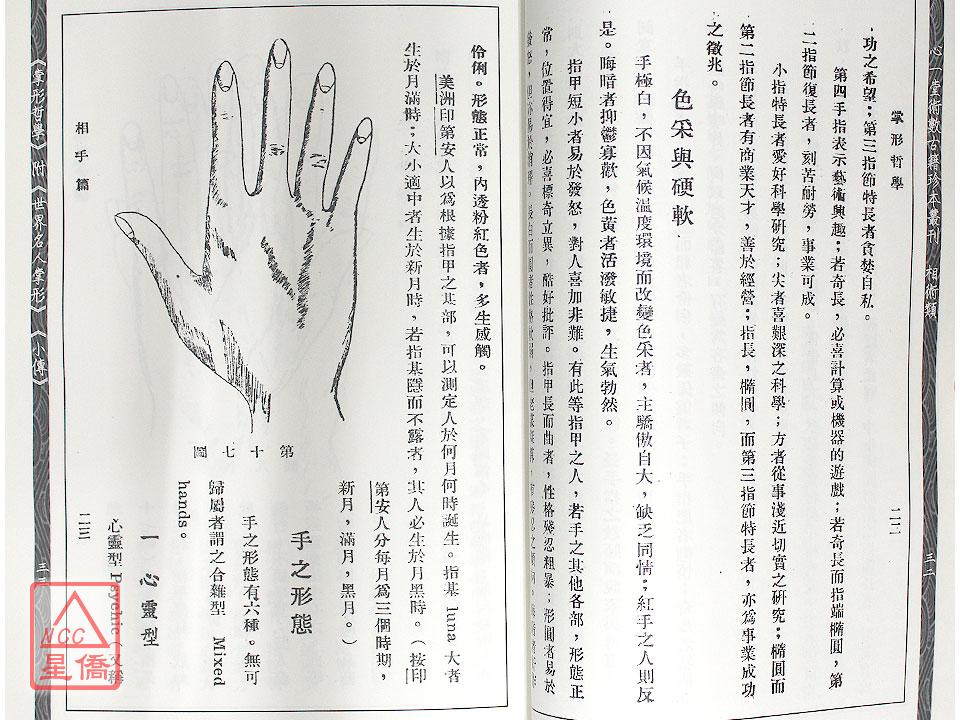 心一堂術數古籍珍本叢刊 相術類
掌形哲學
二二
三二
功之希望；第三指節特長者貪婪自私。
第四手指表示藝術興趣；若奇長，必喜計算或機器的遊戲；若奇長而指端橢圓，第
二指節復長者，刻苦耐勞，事業可成。
小指特長者愛好科學研究；尖者喜艱深之科學；方者從事淺近切實之研究；橢圓而
第二指節長者有商業天才，善於經營；指長，橢圓，而第三指節特長者，亦爲事業成功
之徵兆。
色采與硬軟
手極白，不因氣候溫度環境而改變色采者，主驕傲自大，缺乏同情；紅手之人則反
是。晦暗者抑鬱寡歡，色黃者活潑敏捷，生氣勃然。
指甲短小者易於發怒，對人喜加非難。有此等指甲之人，若手之其他各部，形態正
常，位置得宜，必喜標奇立異，酷好批評。指甲長而曲者，性格殘忍粗暴；形圓者易於
伶俐。形態正常，內透粉紅色者，多生感觸。
美洲印第安人以爲根據指甲之基部，可以測定人於何月何時誕生。指基 luna 大者
生於月滿時；大小適中者生於新月時，若指基隱而不露者，其人必生於月黑時。（按印
第安人分每月爲三個時期，
新月，滿月，黑月。）
手之形態
手之形態有六種。無可
歸屬者謂之合雜型 Mixed
hands。
一 心靈型
心靈型 Psychic（又稱
第十七圖
相手篇
二三
《掌形哲學》附《世界名人掌形》《小傳》
NCC
星僑